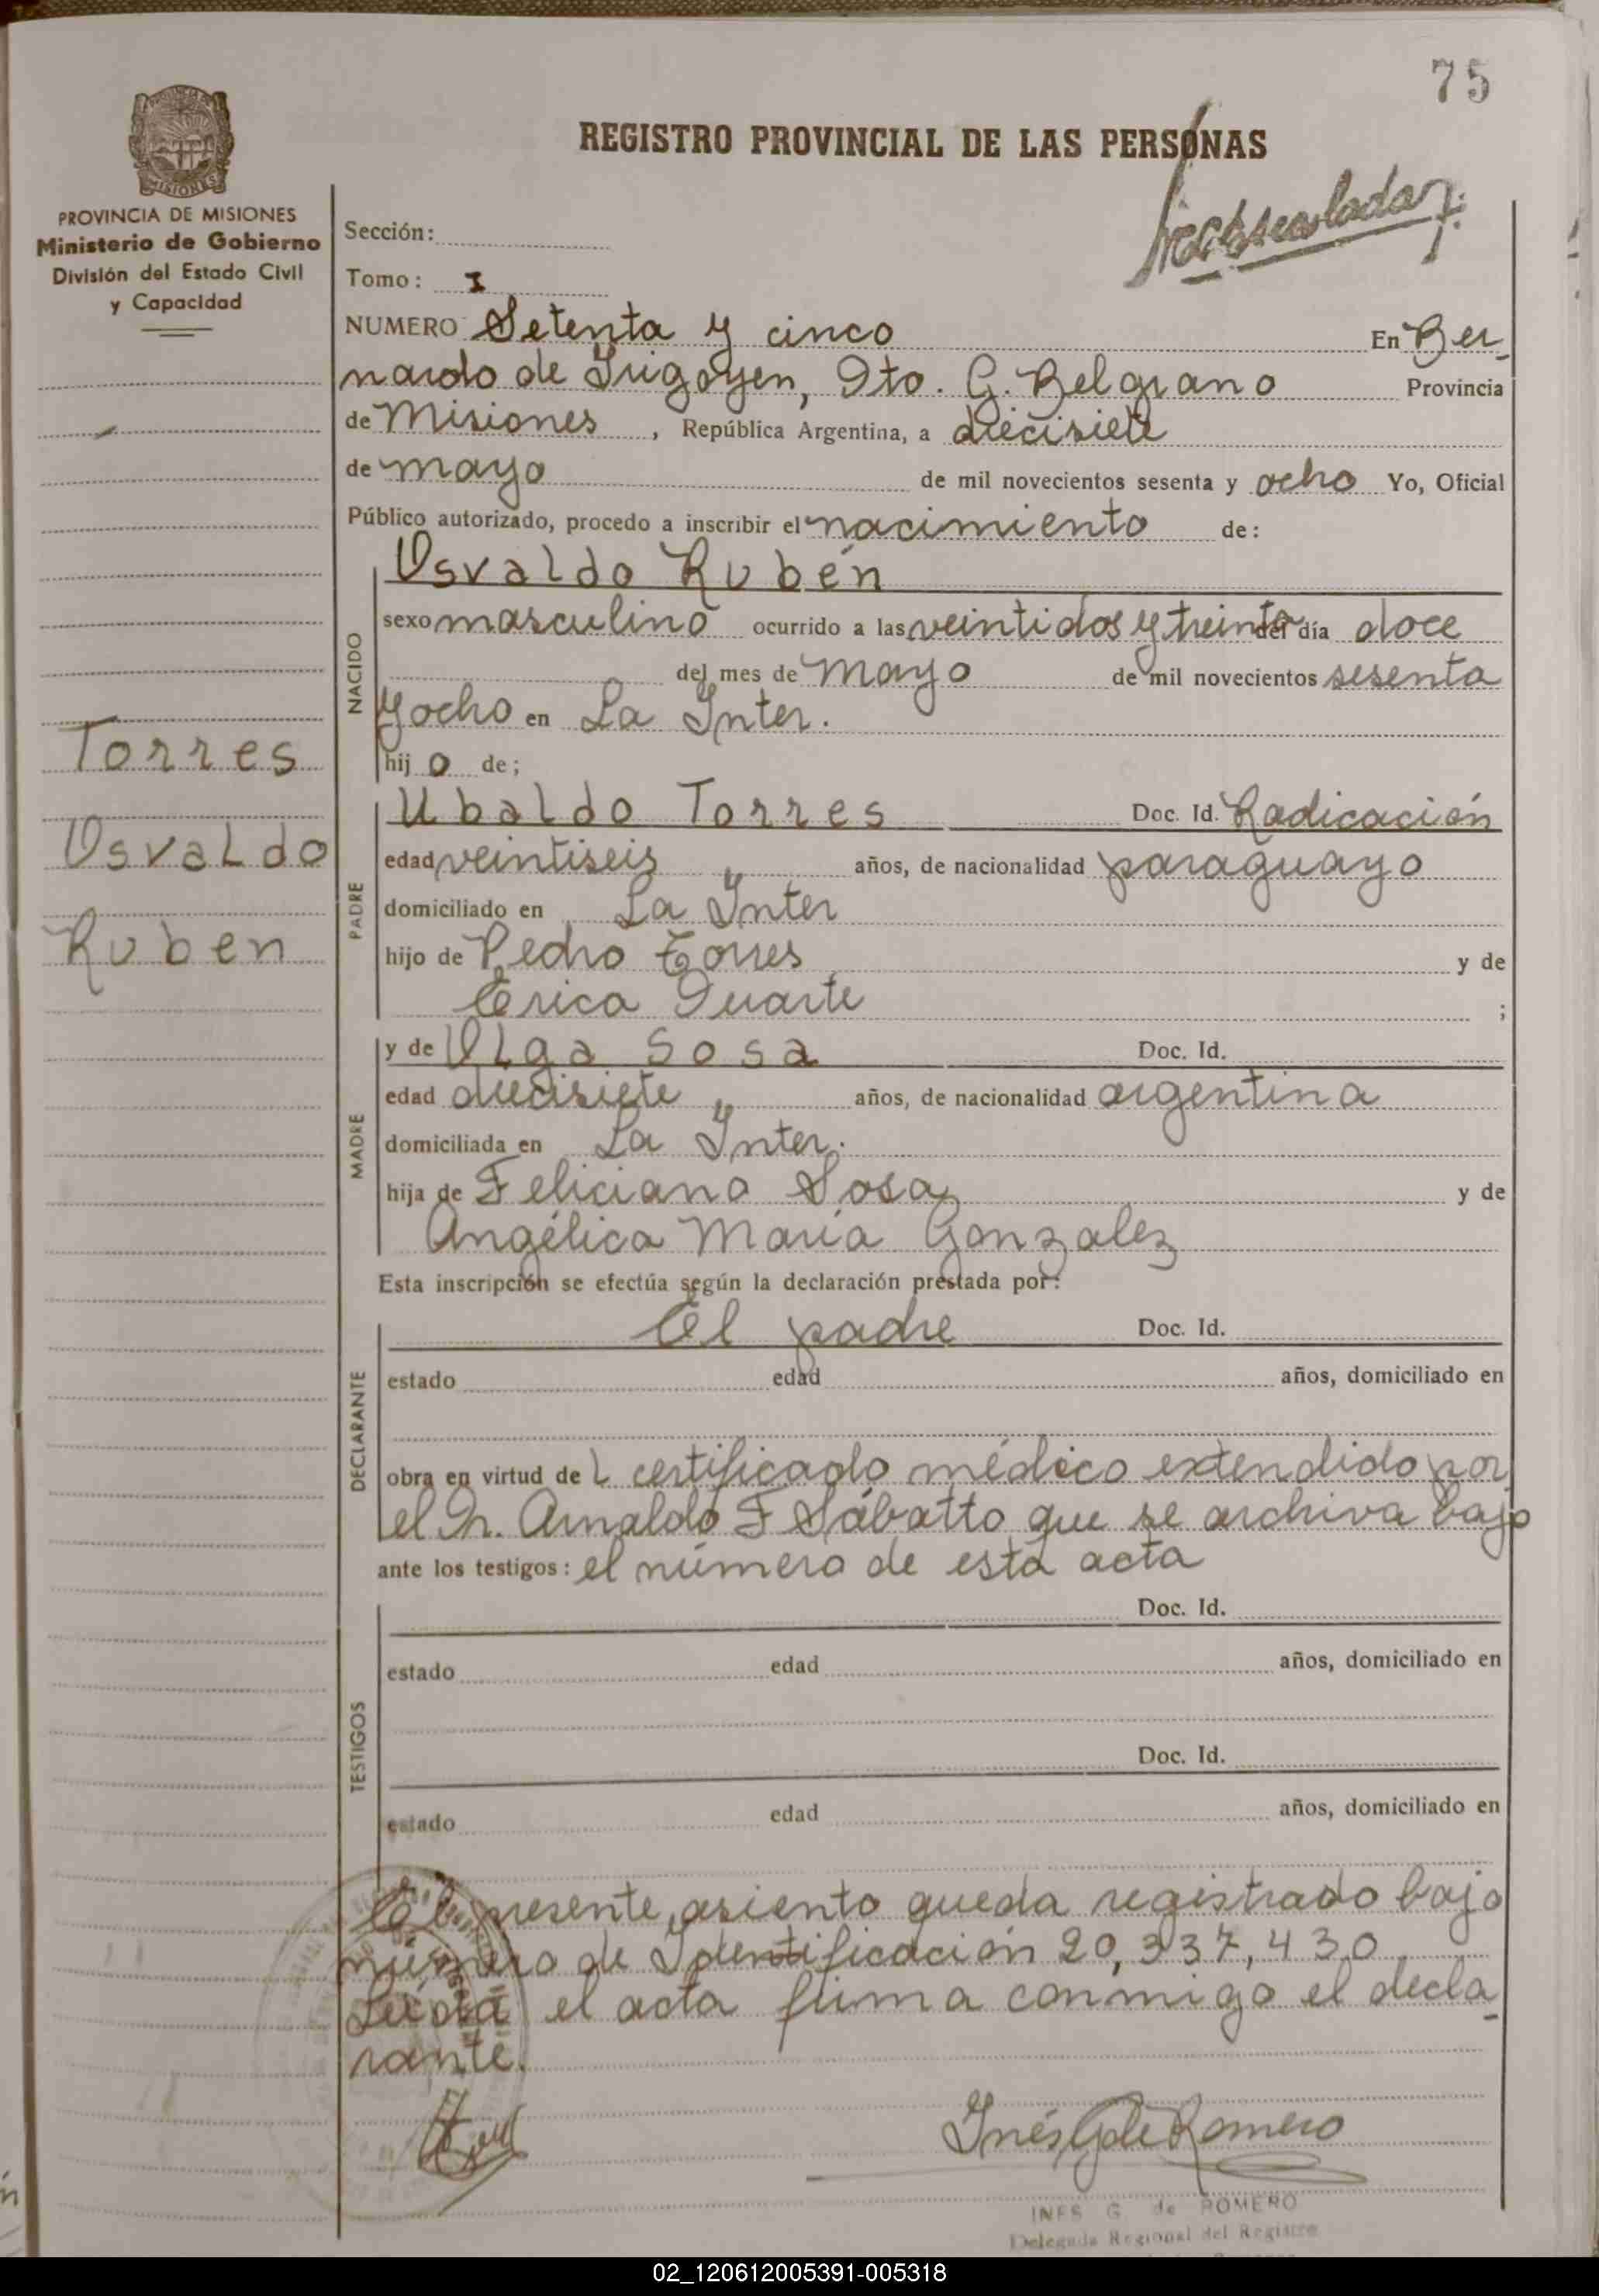 75
REGISTRO PROVINCIAL DE LAS PERSONAS
PROVINCIA DE MISIONES
Ministerio de Gobierno
División del Estado Civil
y Capacidad
Sección:
Tomo: I
NUMERO Setenta y cinco En Ber-
nardo de Irigoyen, Dto. G. Belgrano Provincia
de Misiones, República Argentina, a diecisiete
de mayo de mil novecientos sesenta y ocho Yo, Oficial
Público autorizado, procedo a inscribir el nacimiento de:
NACIDO
Osvaldo Rubén
sexo masculino ocurrido a las veintidos y treinta del día doce
del mes de mayo de mil novecientos sesenta
y ocho en La Inter.
hijo de;
Torres
Osvaldo
Ruben
PADRE
Ubaldo Torres Doc. Id. Radicación
edad veintiseis años, de nacionalidad paraguayo
domiciliado en La Inter
hijo de Pedro Torres y de
Erica Duarte ;
MADRE
y de Olga Sosa Doc. Id.
edad diecisiete años, de nacionalidad argentina
domiciliada en La Inter.
hija de Feliciano Sosa y de
Angélica María Gonzalez
Esta inscripción se efectúa según la declaración prestada por:
DECLARANTE
El padre Doc. Id.
estado edad años, domiciliado en
obra en virtud del certificado médico extendido por
el Dr. Arnaldo F Sábatto que se archiva bajo
ante los testigos: el número de esta acta
TESTIGOS
Doc. Id.
estado edad años, domiciliado en
Doc. Id.
estado edad años, domiciliado en
El presente asiento queda registrado bajo
número de Identificación 20,337,430.
Leída el acta firma conmigo el decla-
rante.
Inés G de Romero
INES G. de ROMERO
Delegada Regional del Registro
02_120612005391-005318